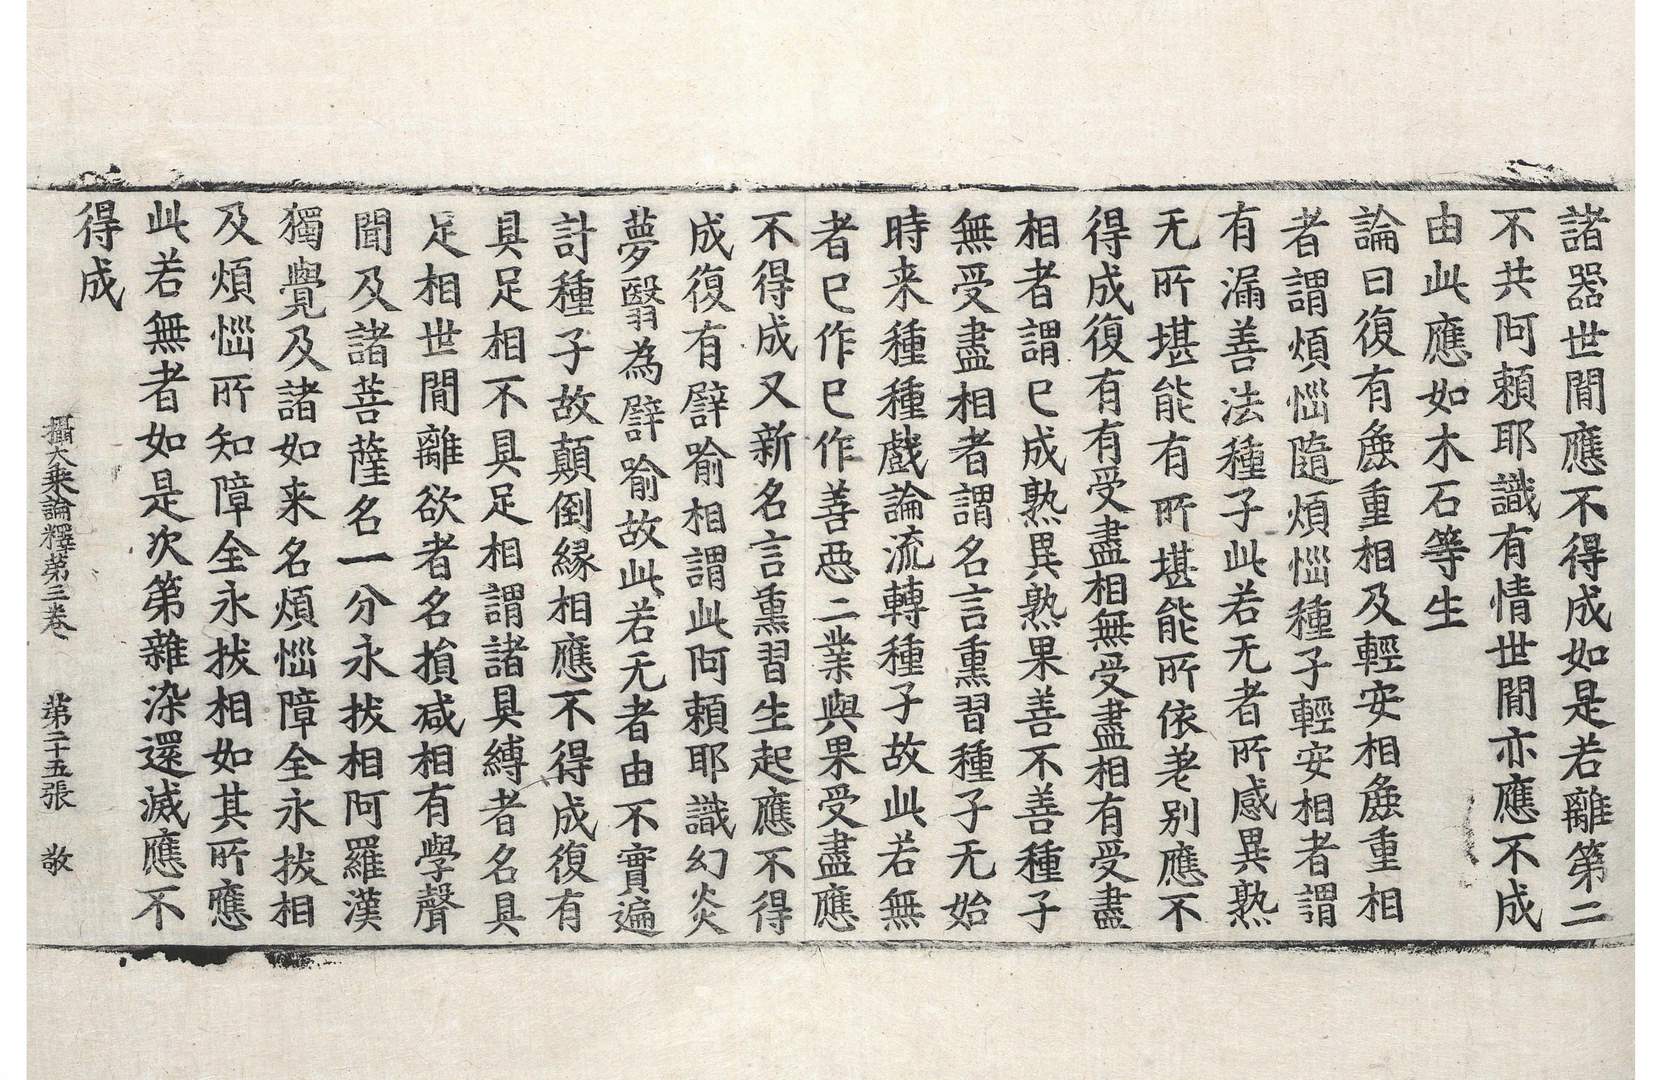 諸器世間應不得成如是若離第二
不共阿頼耶識有情世間亦應不成
由此應如木石等生
論曰復有麁重相及輕安相麁重相
者謂煩惱隨煩惱種子輕安相者謂
有漏善法種子此若无者所感異熟
无所堪能有所堪能所依差別應不
得成復有有受盡相無受盡相有受盡
相者謂已成熟異熟果善不善種子
無受盡相者謂名言熏習種子无始
時来種種戲論流轉種子故此若無
者已作已作善惡二業與果受盡應
不得成又新名言熏習生起應不得
成復有譬喻相謂此阿頼耶識幻炎
夢翳為譬喻故此若无者由不實遍
計種子故顛倒縁相應不得成復有
具足相不具足相謂諸具縛者名具
足相世間離欲者名損減相有學聲
聞及諸菩薩名一分永拔相阿羅漢
獨覺及諸如来名煩惱障全永拔相
及煩惱所知障全永拔相如其所應
此若無者如是次第雜染還滅應不
得成
攝大乗論釋第三卷 第二十五張 敬